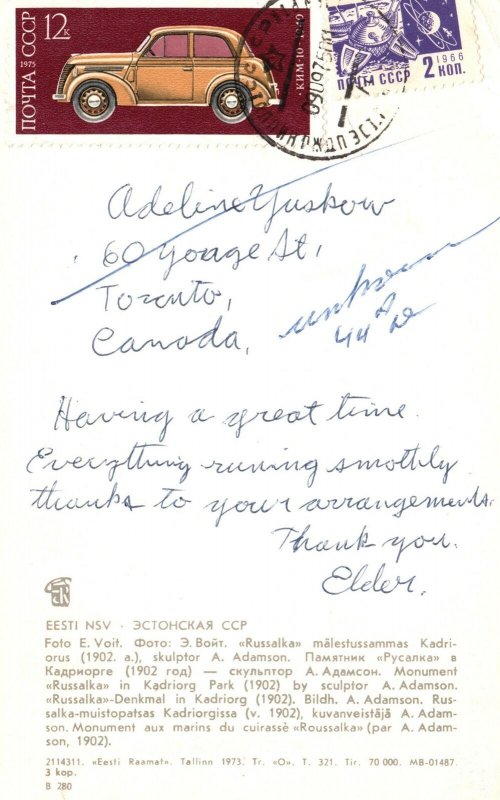 ПОЧТА СССР
1975
12 К
КИМ-10 · 1940
1966
ПОЧТА СССР 2 КОП.
Adeline Yuskow
60 Yonge St,
Toronto,
Canada,
unknown
Having a great time.
Everything running smothly
thanks to your arrangements.
Thank you.
Elder.
EESTI NSV · ЭСТОНСКАЯ ССР
Foto E. Voit. Фото: Э. Войт. «Russalka» mälestussammas Kadri-
orus (1902. a.), skulptor A. Adamson. Памятник «Русалка» в
Кадриорге (1902 год) — скульптор А. Адамсон. Monument
«Russalka» in Kadriorg Park (1902) by sculptor A. Adamson.
«Russalka»-Denkmal in Kadriorg (1902). Bildh. A. Adamson. Rus-
salka-muistopatsas Kadriorgissa (v. 1902), kuvanveistäjä A. Adam-
son. Monument aux marins du cuirassè «Roussalka» (par A. Adam-
son, 1902).
2114311. «Eesti Raamat». Tallinn 1973. Tr. «O». T. 321. Tir. 70 000. MB-01487.
3 kop.
B 280